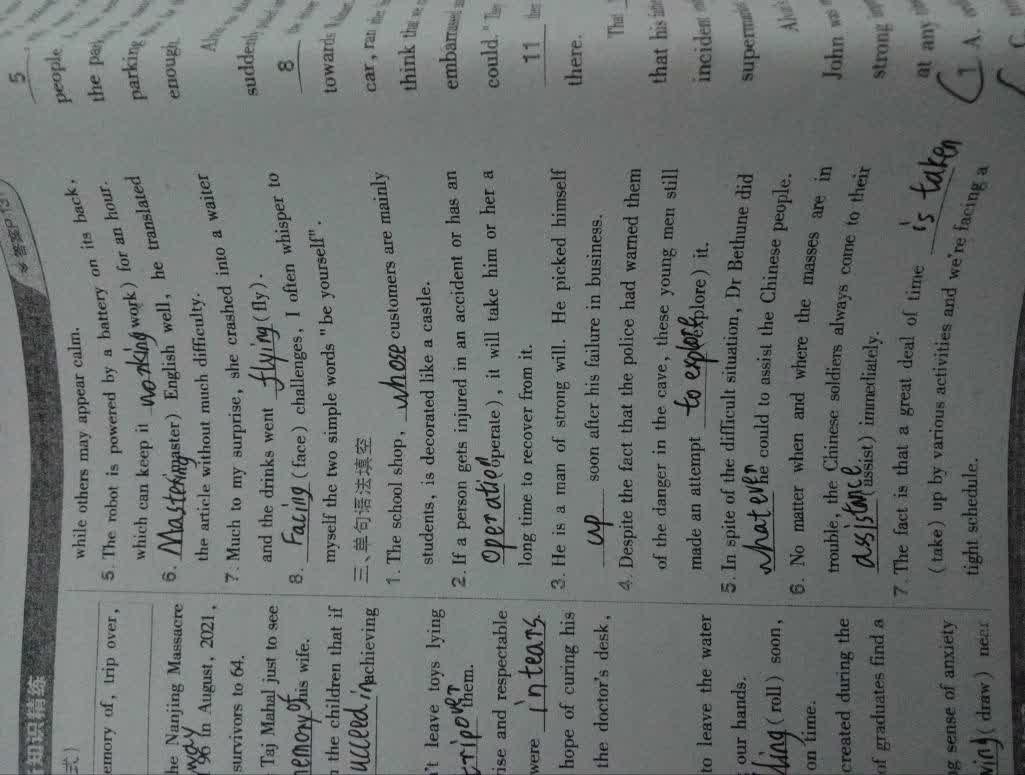 知识精练
emory of, trip over,
he Nanjing Massacre
in August, 2021,
survivors to 64.
Taj Mahal just to see
emory of his wife.
n the children that if
ucceed in achieving
't leave toys lying
trip over them.
ise and respectable
were in tears.
hope of curing his
the doctor's desk,
to leave the water
our hands.
ling (roll) soon,
on time.
created during the
of graduates find a
g sense of anxiety
ing (draw) near
答案P.131
while others may appear calm.
5. The robot is powered by a battery on its back,
which can keep it working (work) for an hour.
6. Mastering (master) English well, he translated
the article without much difficulty.
7. Much to my surprise, she crashed into a waiter
and the drinks went flying (fly).
8. Facing (face) challenges, I often whisper to
myself the two simple words "be yourself".
三、单句语法填空
1. The school shop, whose customers are mainly
students, is decorated like a castle.
2. If a person gets injured in an accident or has an
operation (operate), it will take him or her a
long time to recover from it.
3. He is a man of strong will. He picked himself
up soon after his failure in business.
4. Despite the fact that the police had warned them
of the danger in the cave, these young men still
made an attempt to explore (explore) it.
5. In spite of the difficult situation, Dr Bethune did
whatever he could to assist the Chinese people.
6. No matter when and where the masses are in
trouble, the Chinese soldiers always come to their
assistance (assist) immediately.
7. The fact is that a great deal of time is taken
(take) up by various activities and we're facing a
tight schedule.
5
people
the par
parking
enough.
suddenly
8
towards
car, ran
think that we
embarrassed
could.
11
there.
that his
incident
supermar
John was
strong
at any
1 A.
C.